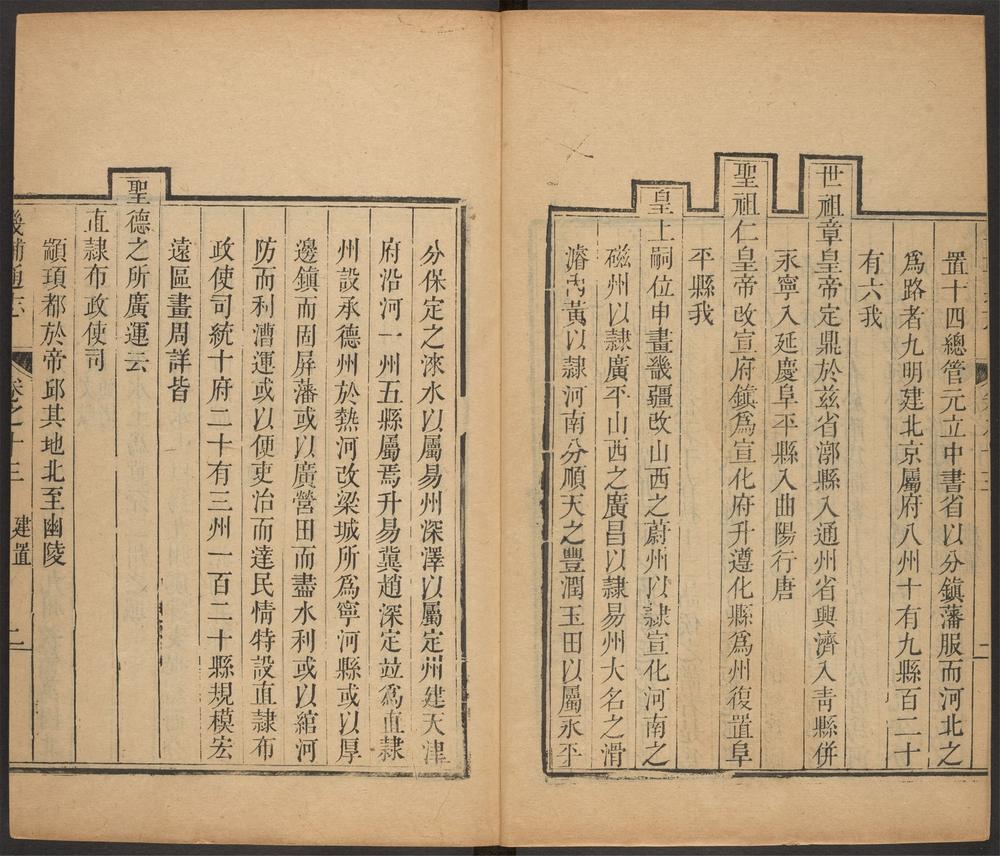 置十四總管元立中書省以分鎮藩服而河北之
為路者九明建北京屬府八州十有九縣百二十
有六我
世祖章皇帝定鼎於兹省漷縣入通州省興濟入青縣併
永寧入延慶阜平縣入曲陽行唐
聖祖仁皇帝改宣府鎮為宣化府升遵化縣為州復置阜
平縣我
皇上嗣位申畫畿疆改山西之蔚州以隸宣化河南之
磁州以隸廣平山西之廣昌以隸易州大名之滑
濬內黃以隸河南分順天之豐潤玉田以屬永平
分保定之淶水以屬易州深澤以屬定州建天津
府沿河一州五縣屬焉升易冀趙深定竝為直隸
州設承德州於熱河改梁城所為寧河縣或以厚
邊鎮而固屏藩或以廣營田而盡水利或以綰河
防而利漕運或以便吏治而達民情特設直隸布
政使司統十府二十有三州一百二十縣規模宏
遠區畫周詳皆
聖德之所廣運云
直隸布政使司
顓頊都於帝邱其地北至幽陵
畿輔通志 卷之十三 建置 二